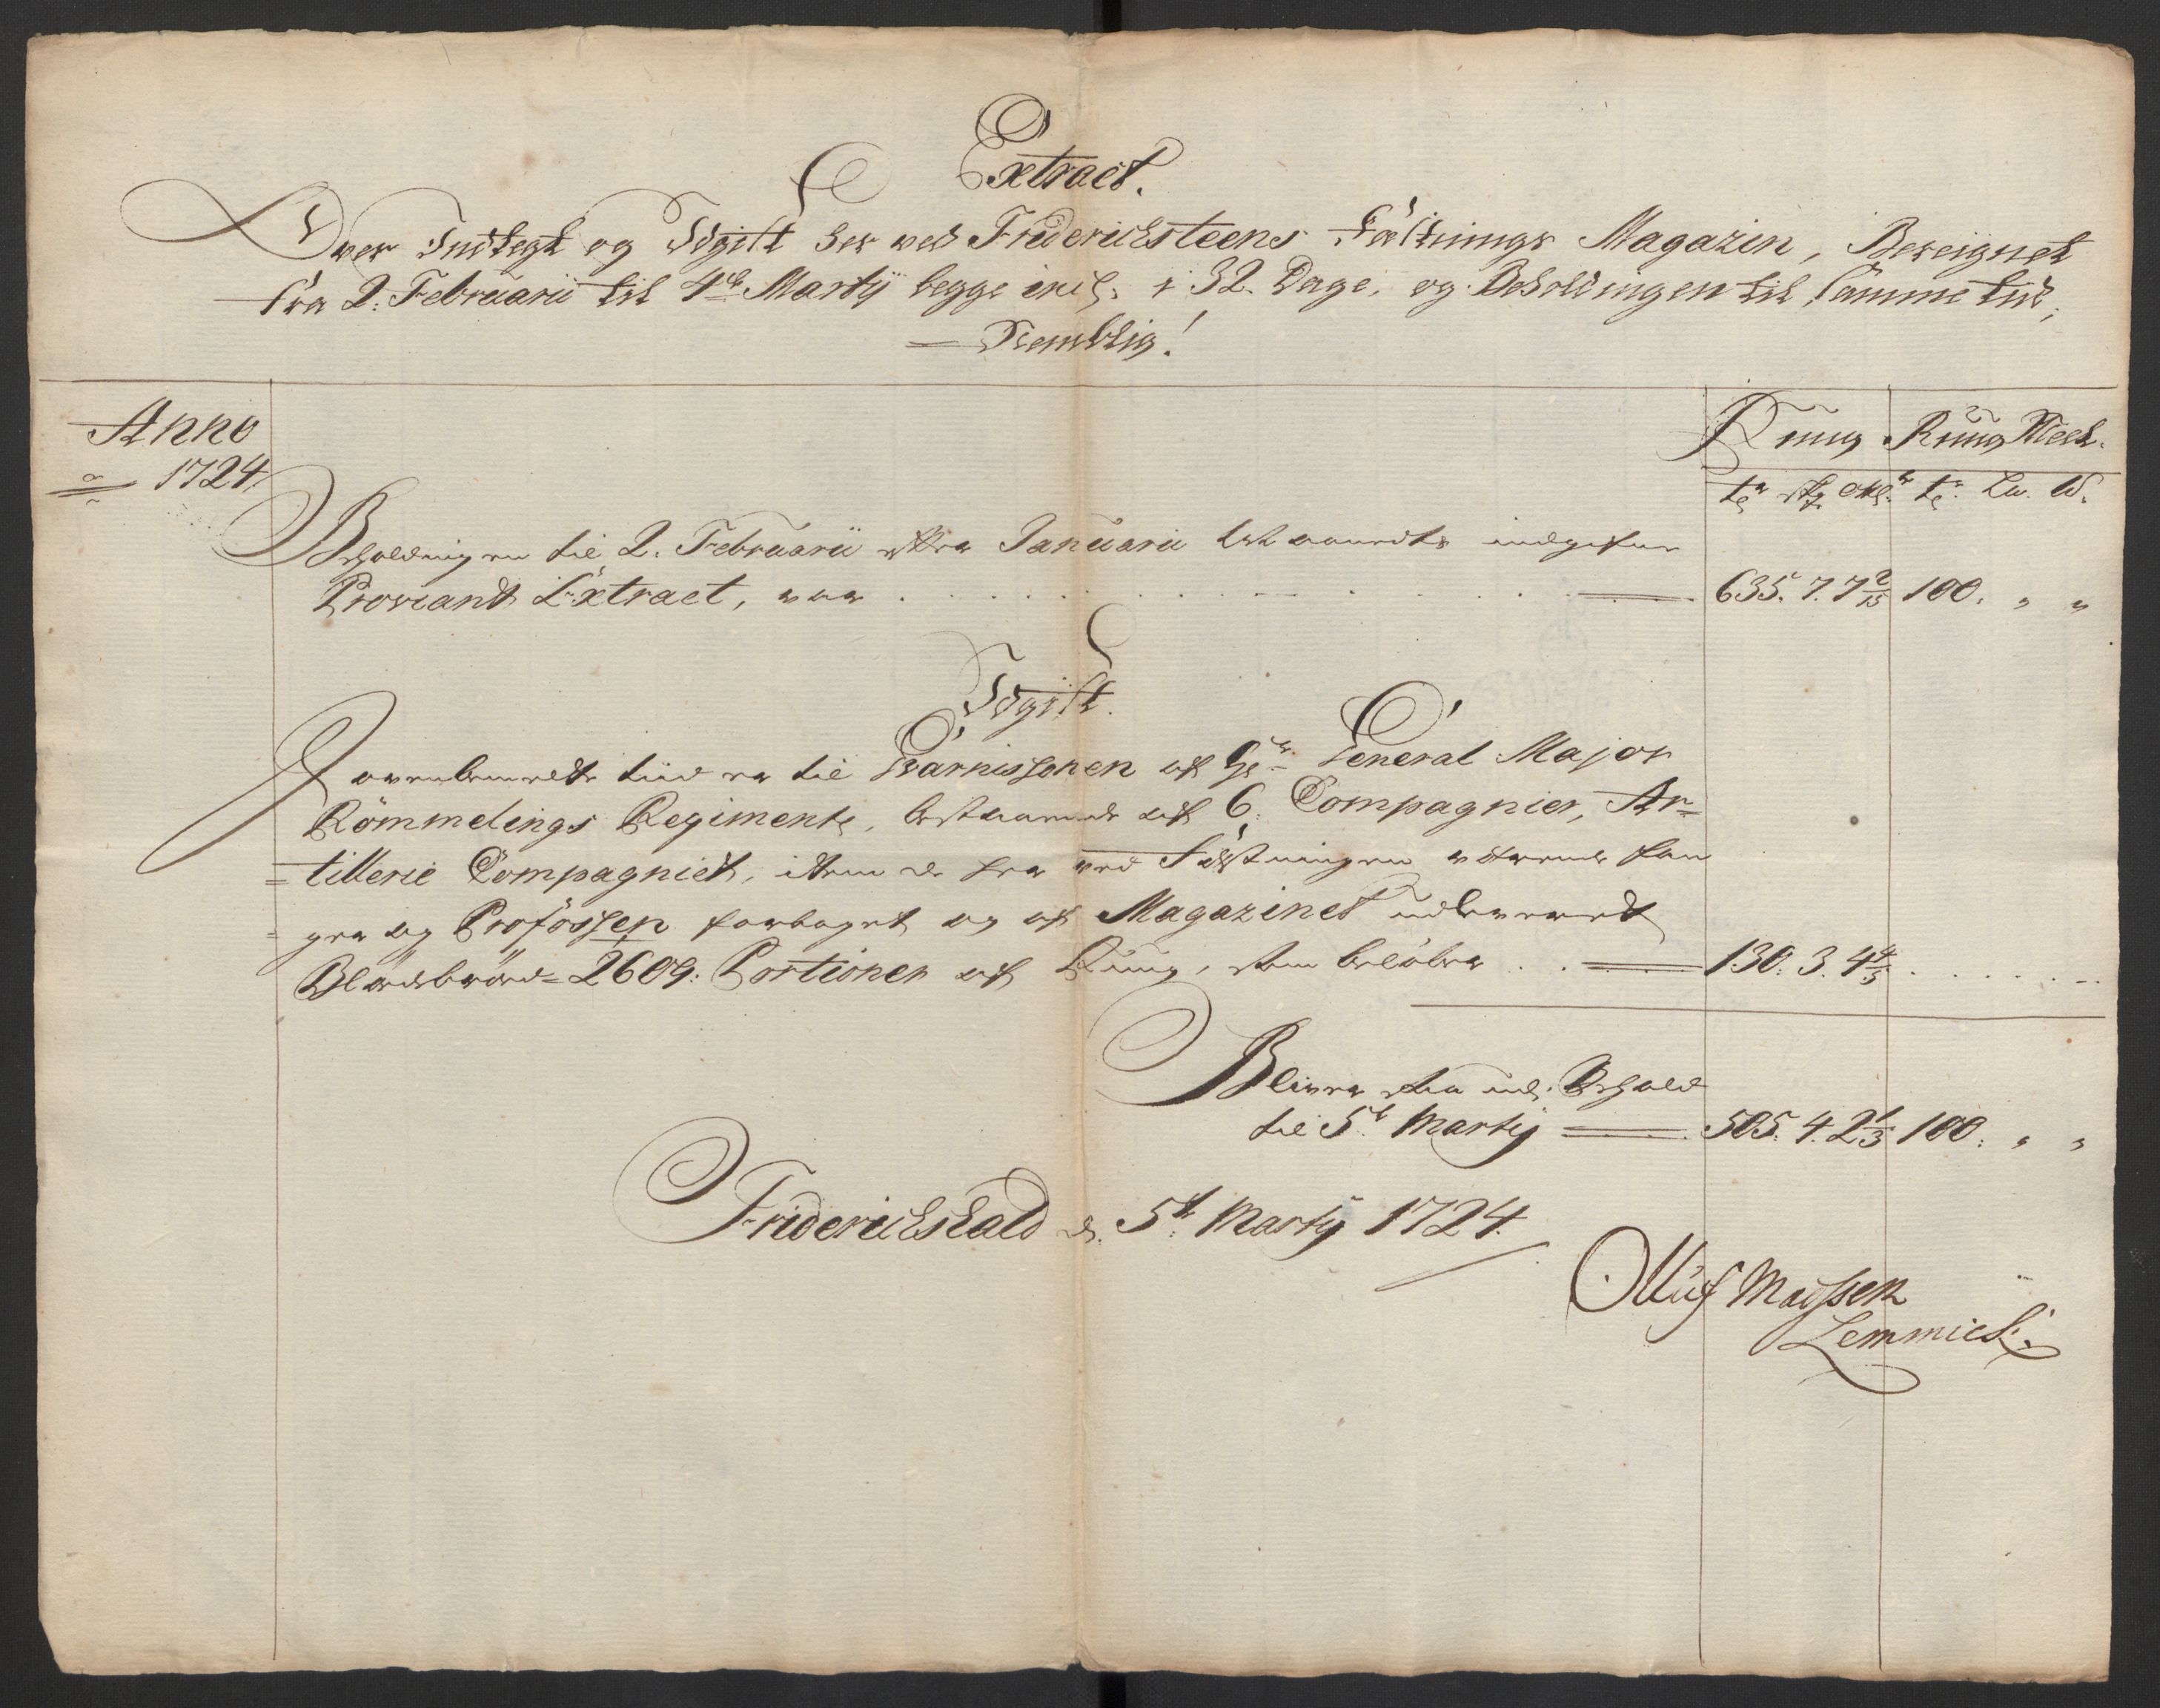 Extract.
Over Indtegt og Udgift her ved Friderichsteens Fæstnings Magazin, Bereignet
fra 2. Februarii til 4de Martij begge incl. i 32. Dage, og Beholdingen til samme tid,
Nembtlig!
Anno
1724
Rung Rung Meel.
Beholdningen til 2. Februarii effter Januarii Maaneds indgifne
Proviant Extract, var . . . . 635. 7. 7 2/15 100. " "
Udgift.
I ovenbemeldte tiid er til Guarnissonen af Hr. General Major
Römmelings Regimente, bestaaende af 6. Compagnier, Ar-
tillerie Compagniet, item de her ved Fæstningen værende fan
ger og Profossen forbaget og af Magazinet udleveret
Blödebröd 2609. Portioner af Rung, som belöber . . 130. 3. 4 4/5 . . . .
Bliver saa udj Behold
til 5te Martij 505. 4. 2 1/3 100. " "
Friderichshald d. 5te Martij 1724.
Olluf Madssen
Lemmich